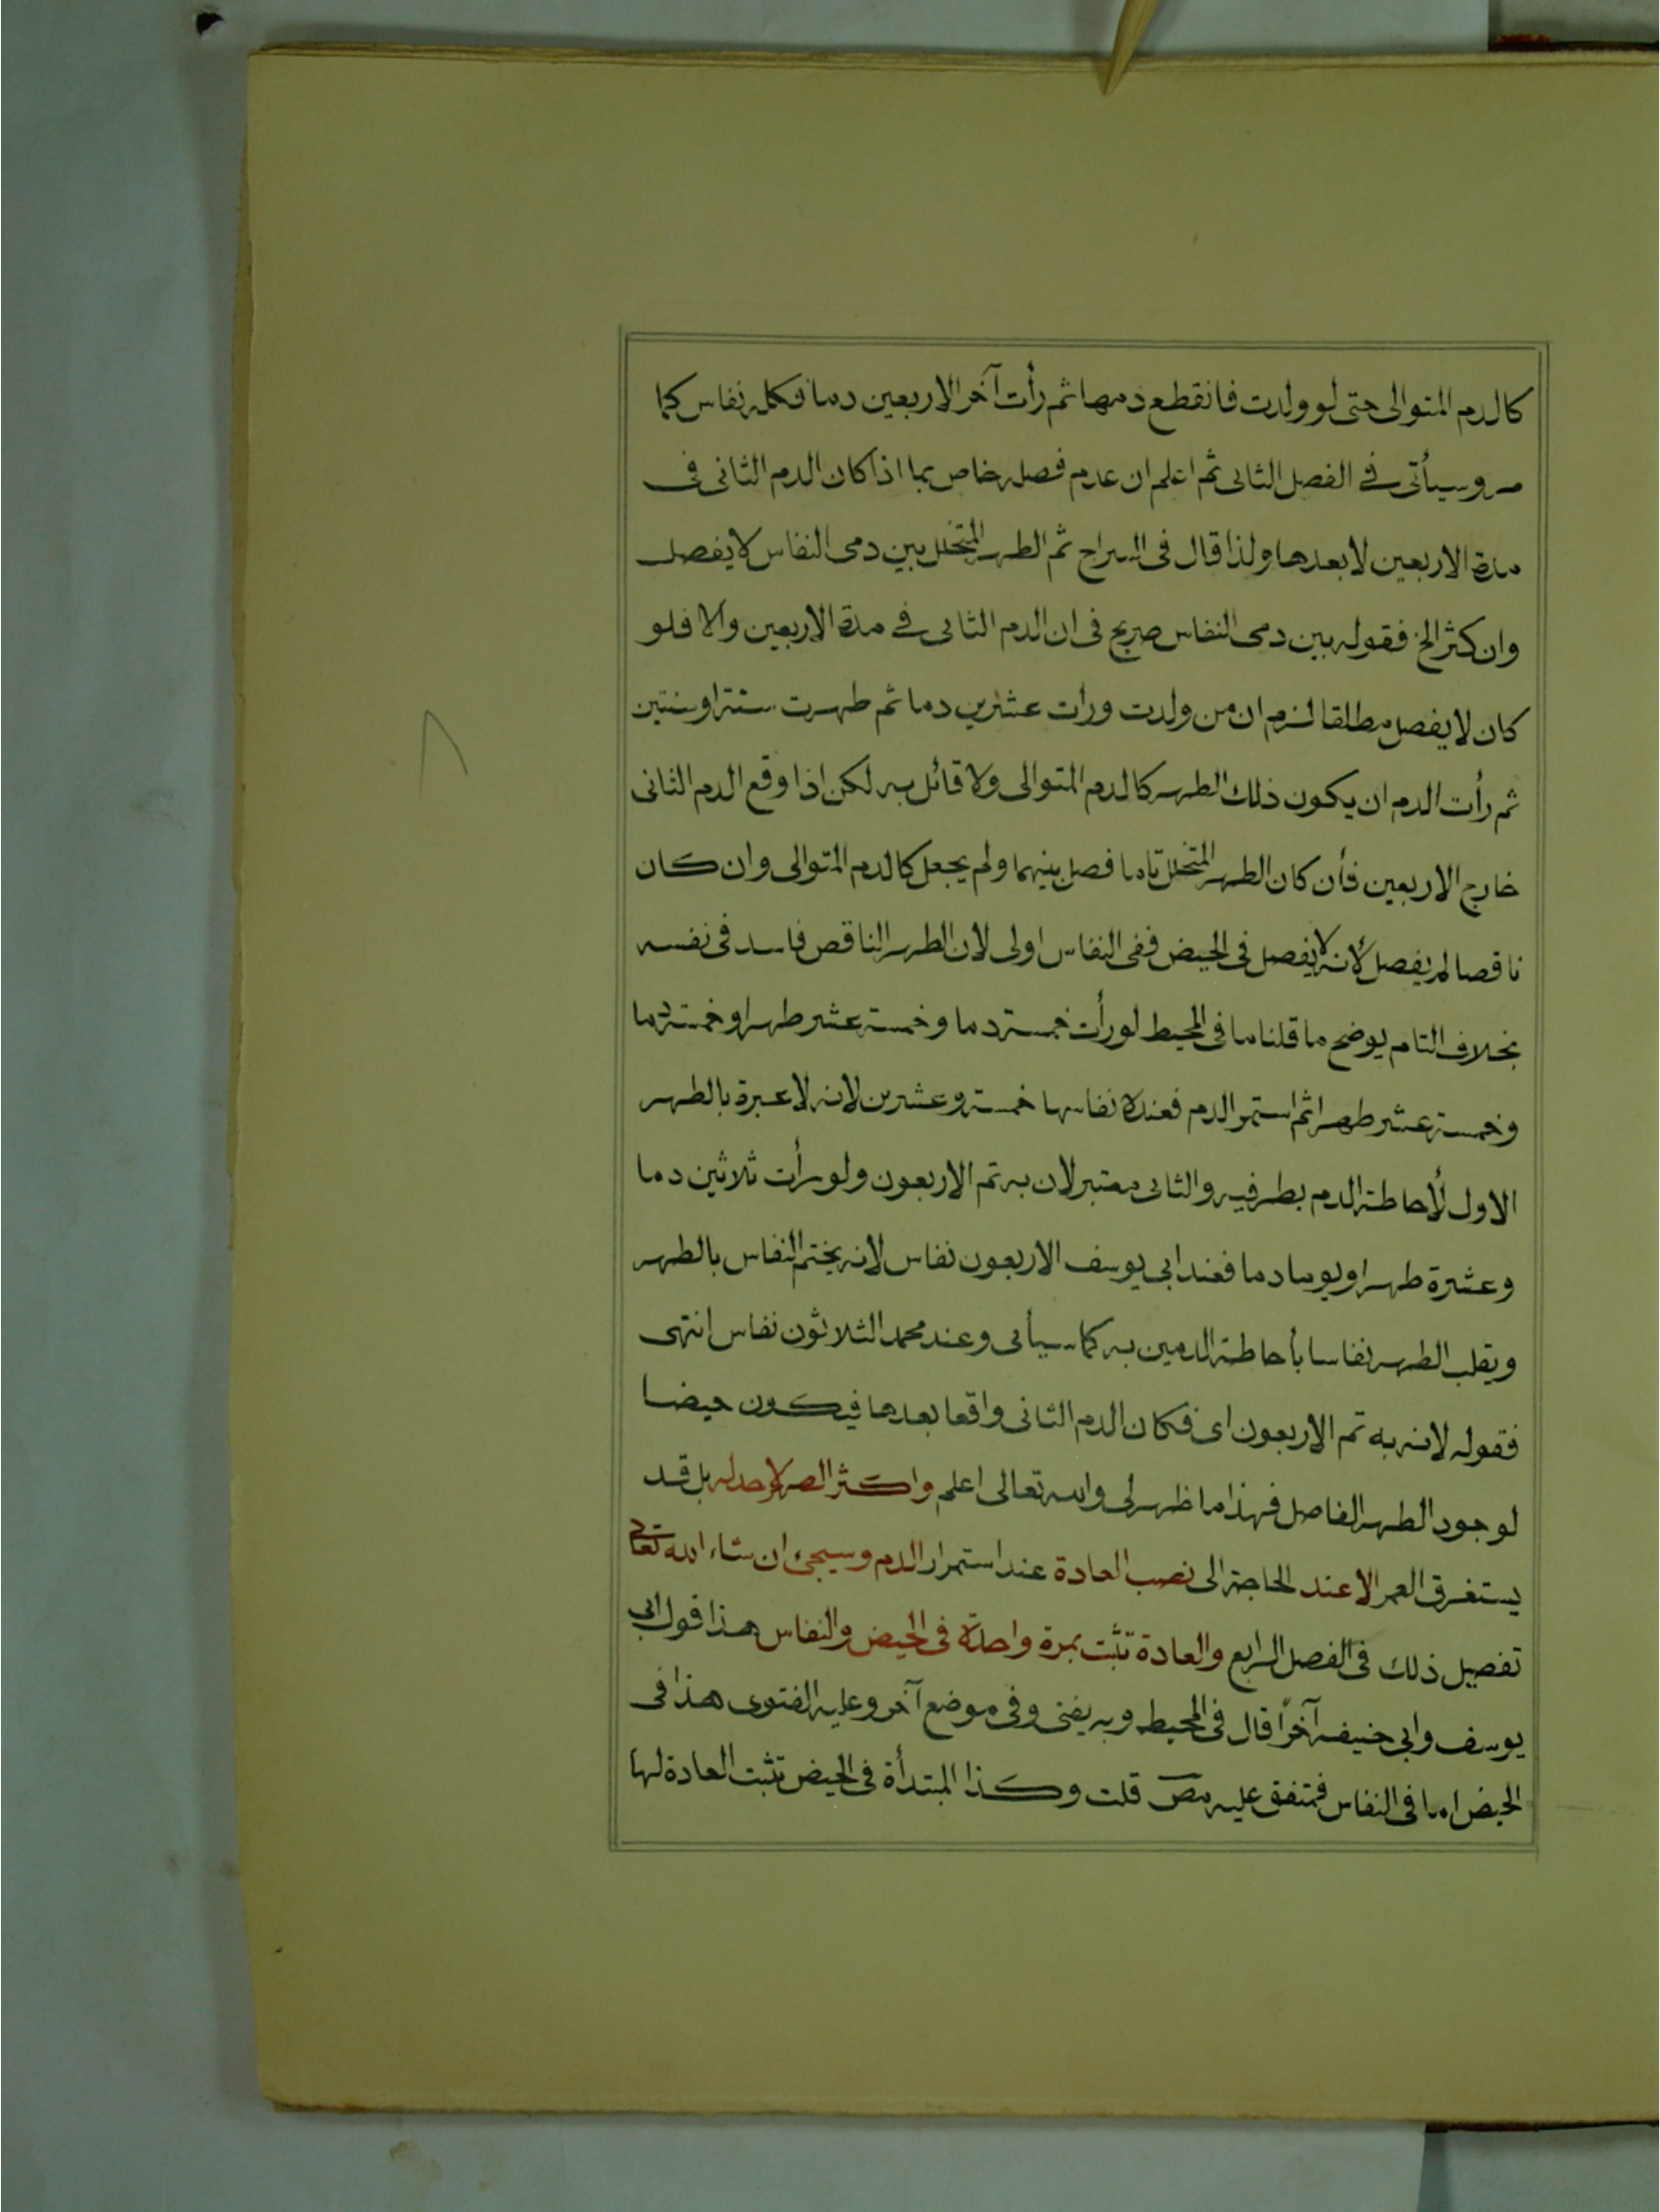 كالدم المتوالى حتى لو ولدت فانقطع دمها ثم رأت آخر الاربعين دما فكله نفاس كما
مر وسيأتى فے الفصل الثانى ثم اعلم ان عدم فصله خاص بما اذا كان الدم الثانى فى
مدة الاربعين لا بعدها ولذا قال فى السراج ثم الطهر المتخلل بين دمى النفاس لا يفصل
وان كثر الخ فقوله بين دمى النفاس صريح فى ان الدم الثانى فے مدة الاربعين والا فلو
كان لا يفصل مطلقا لزم ان من ولدت ورأت عشرين دما ثم طهرت سنة او سنتين
ثم رأت الدم ان يكون ذلك الطهر كالدم المتوالى ولا قائل به لكن اذا وقع الدم الثانى
خارج الاربعين فأن كان الطهر المتخلل تاما فصل بينهما ولم يجعل كالدم المتوالى وان كان
ناقصا لم يفصل لأنه لا يفصل فى الحيض ففى النفاس اولى لان الطهر الناقص فاسد فى نفسه
بخلاف التام يوضح ما قلنا ما فى المحيط لو رأت خمسة دما وخمسة عشر طهرا وخمسة دما
وخمسة عشر طهرا ثم استمر الدم فعنده نفاسها خمسة وعشرين لانه لا عبرة بالطهر
الاول لأحاطة الدم بطرفيه والثانى معتبر لان به تم الاربعون ولو رأت ثلاثين دما
وعشرة طهرا ويوما دما فعند ابى يوسف الاربعون نفاس لانه يختم النفاس بالطهر
ويقلب الطهر نفاسا بأحاطة الدمين به كما سيأتى وعند محمد الثلاثون نفاس انتهى
فقوله لانه به تم الاربعون اى فكان الدم الثانى واقعا بعدها فيكون حيضا
لوجود الطهر الفاصل فهذا ما ظهر لى والله تعالى اعلم واكثر الطهر لا حد له بل قد
يستغرق العمر الا عند الحاجة الى نصب العادة عند استمرار الدم وسيجئ ان شاء الله تعالى
تفصيل ذلك فى الفصل الرابع والعادة تثبت بمرة واحدة فى الحيض والنفاس هذا قول ابى
يوسف وابى حنيفه آخراً قال فى المحيط وبه يفتى وفى موضع آخر وعليه الفتوى هذا فى
الحيض اما فى النفاس فمتفق عليه مص قلت وكذا المبتدأة فى الحيض تثبت العادة لها